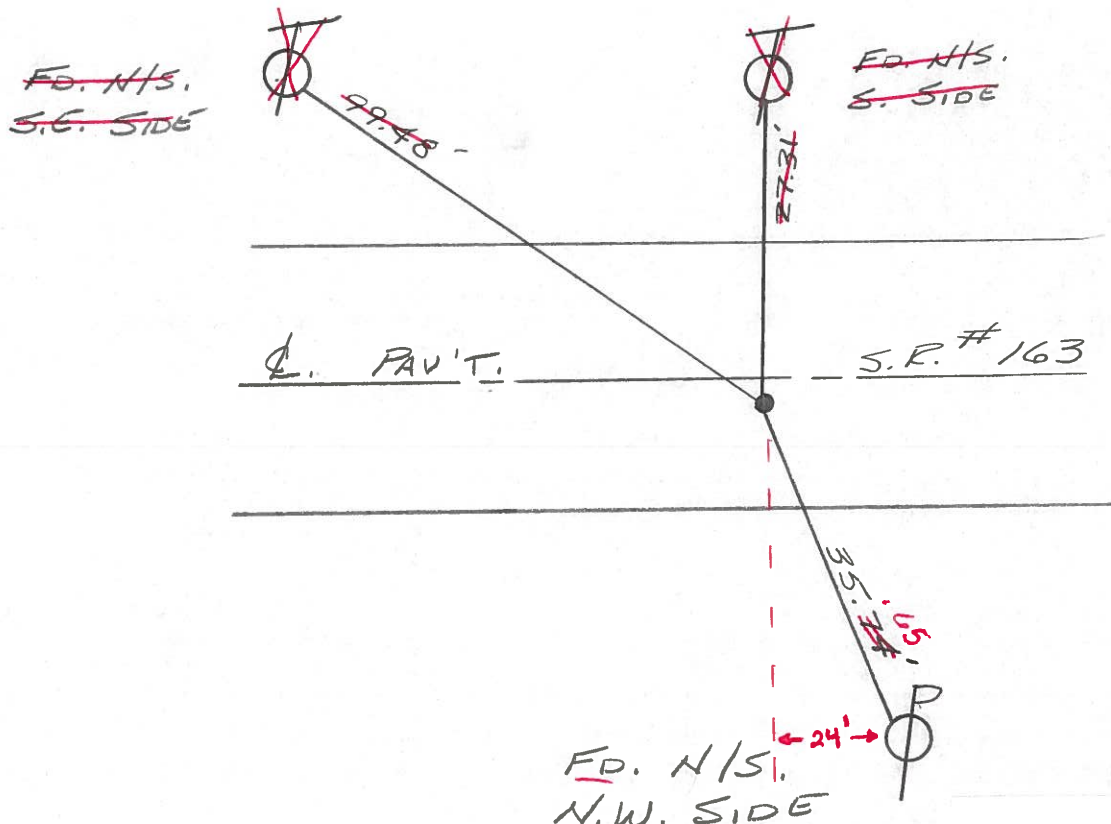 FD. N/S.
S.E. SIDE
FD. N/S.
S. SIDE
99.48
27.31'
℄. PAV'T.
S.R. # 163
35.74'
.65
P
24'
FD. N/S.
N.W. SIDE